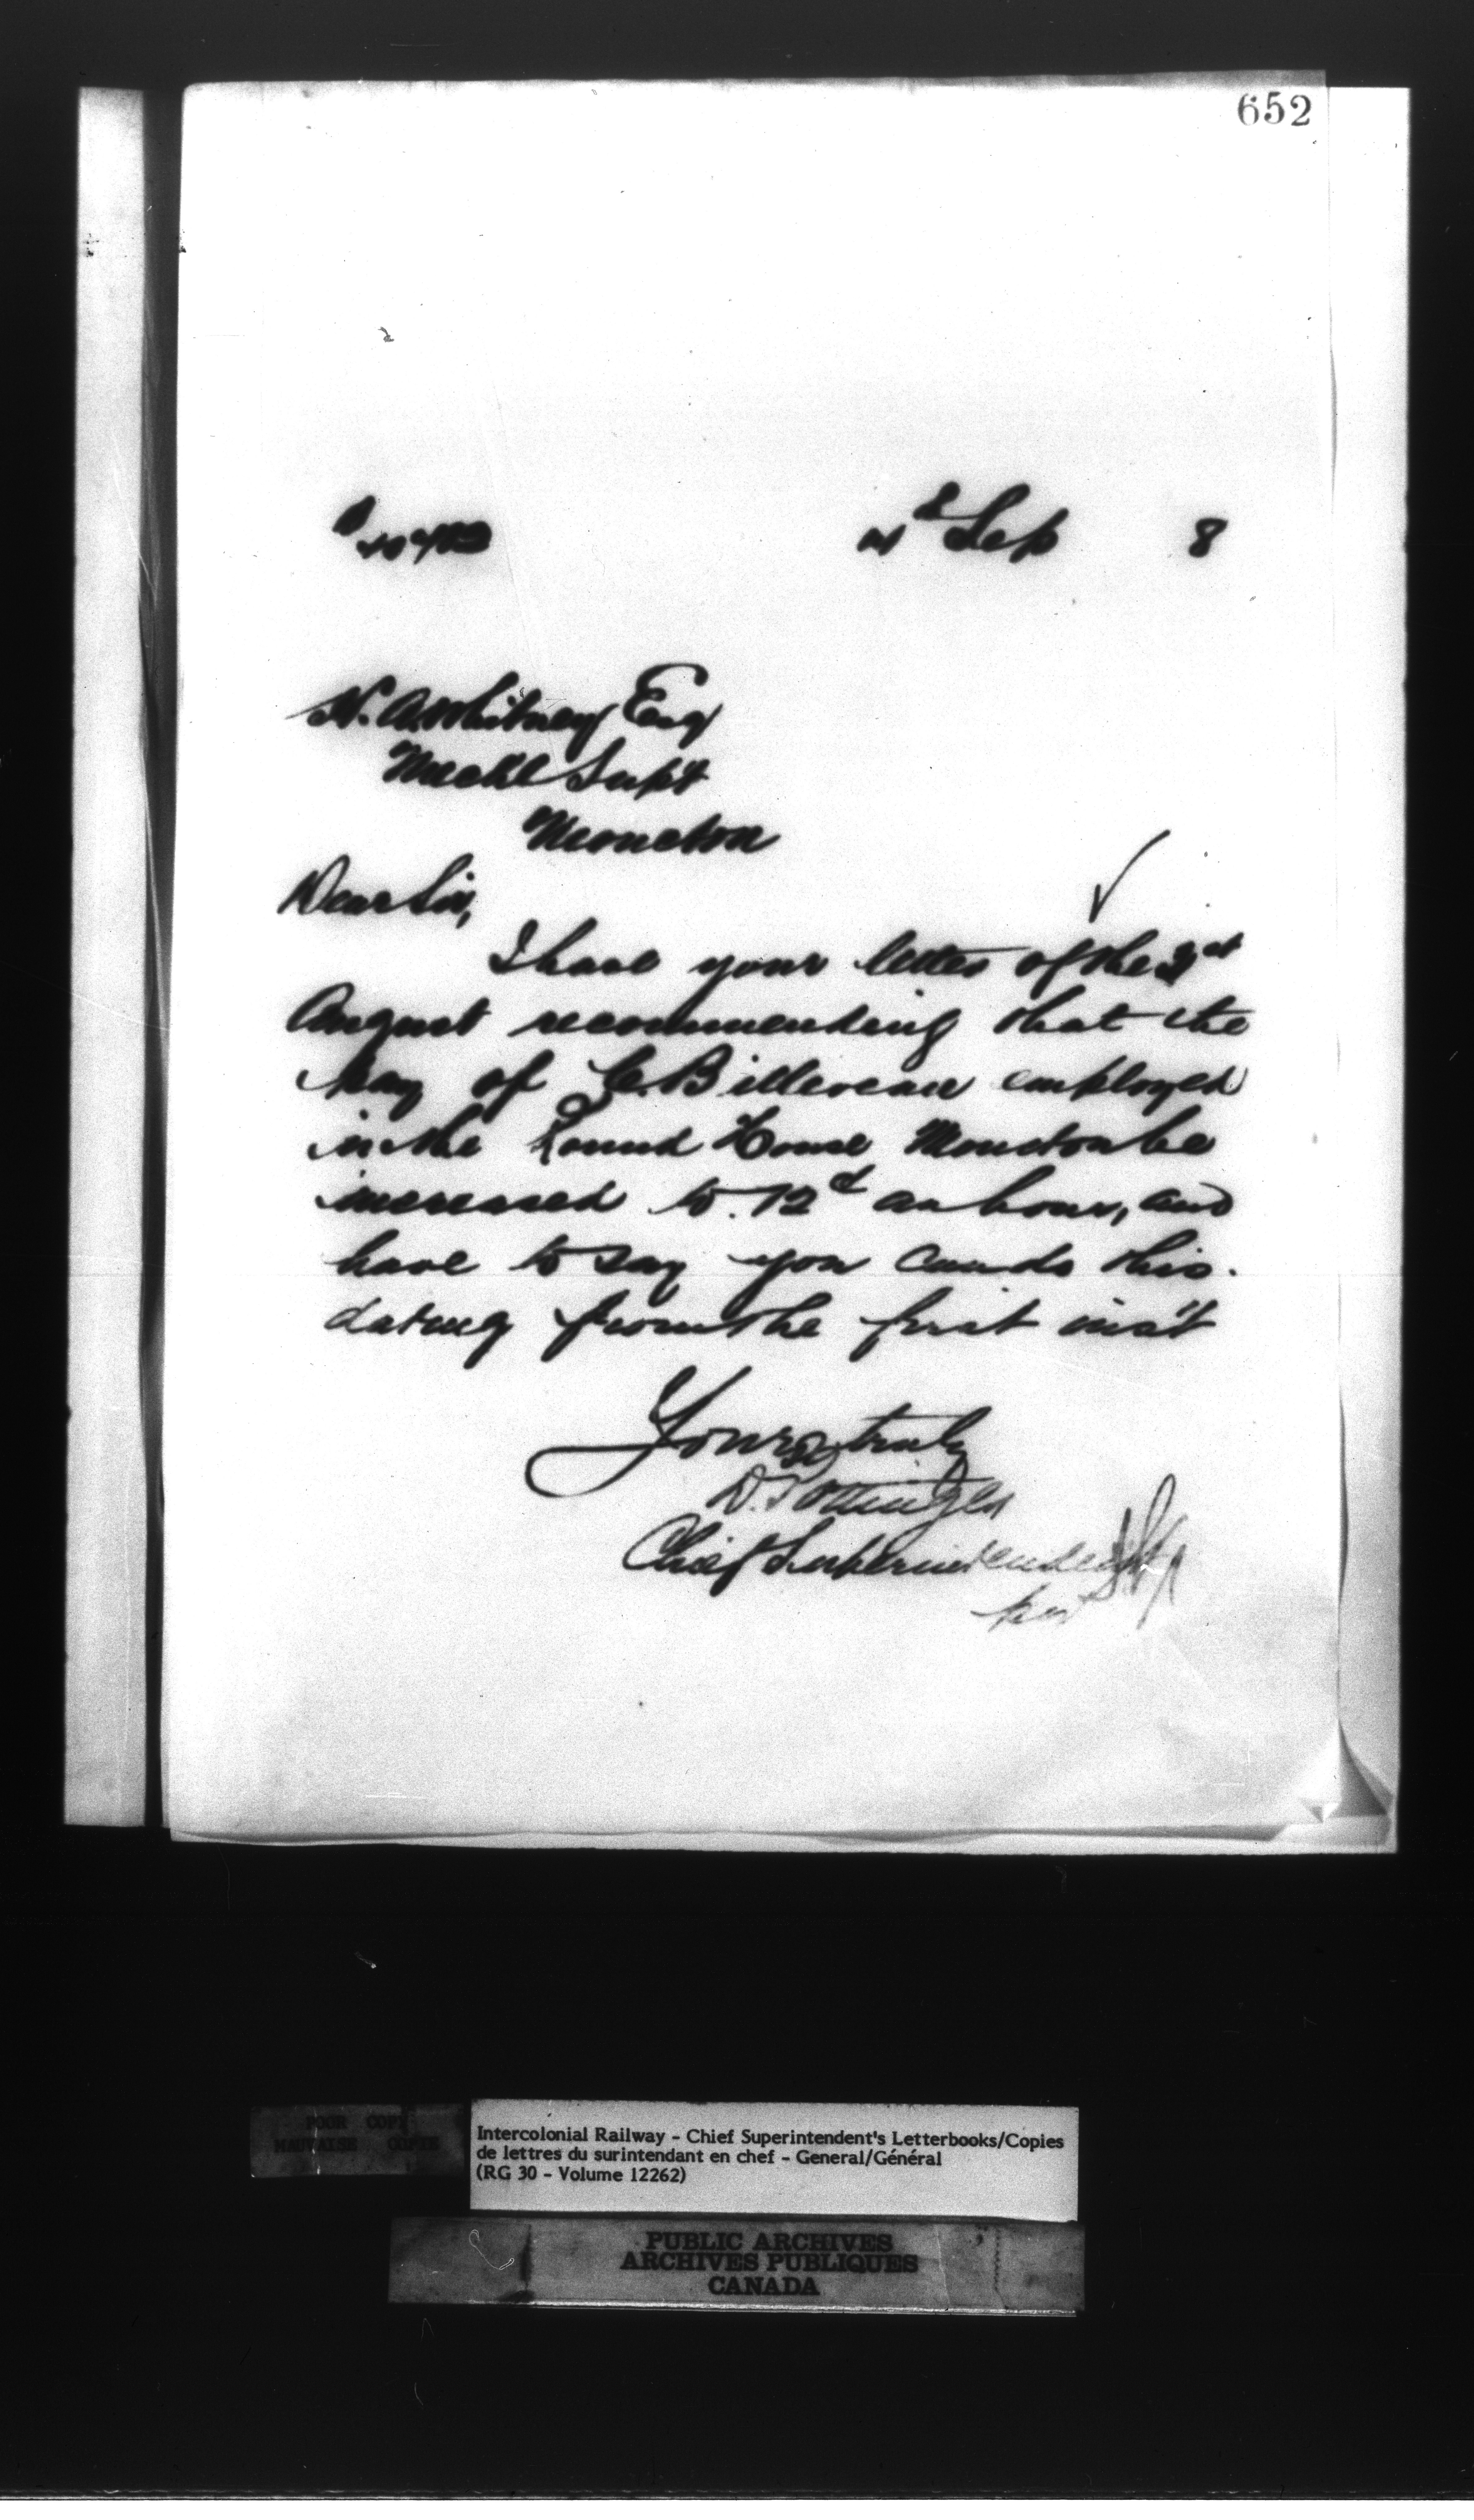 652
Sep 8
H. A. Whitney Esq
Mechl Supt
Moncton
Dear Sir,
I have your letter of the 31st
August recommending that the
pay of C. Billeveau employed
in the Round House Moncton be
increased to 12 an hour, and
have to say you can do this.
dating from the first inst
Yours truly
D. Pottinger
Chief Superintendent
per
POOR COPY
MAUVAISE COPIE
Intercolonial Railway - Chief Superintendent's Letterbooks/Copies
de lettres du surintendant en chef - General/Général
(RG 30 - Volume 12262)
PUBLIC ARCHIVES
ARCHIVES PUBLIQUES
CANADA